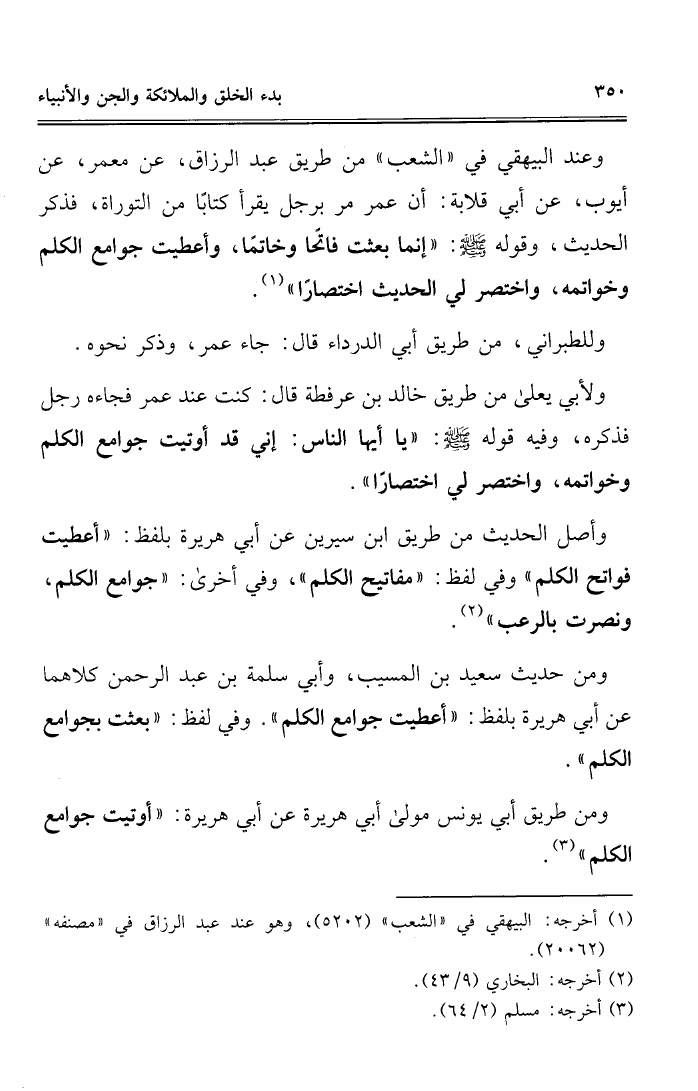 ٣٥٠
بدء الخلق والملائكة والجن والأنبياء
وعند البيهقي في «الشعب» من طريق عبد الرزاق، عن معمر، عن
أيوب، عن أبي قلابة: أن عمر مر برجل يقرأ كتابًا من التوراة، فذكر
الحديث، وقوله ﷺ: «إنما بعثت فاتحًا وخاتمًا، وأعطيت جوامع الكلم
وخواتمه، واختصر لي الحديث اختصارًا»(١).
وللطبراني، من طريق أبي الدرداء قال: جاء عمر، وذكر نحوه.
ولأبي يعلىٰ من طريق خالد بن عرفطة قال: كنت عند عمر فجاءه رجل
فذكره، وفيه قوله ﷺ: «يا أيها الناس: إني قد أوتيت جوامع الكلم
وخواتمه، واختصر لي اختصارًا».
وأصل الحديث من طريق ابن سيرين عن أبي هريرة بلفظ: «أعطيت
فواتح الكلم» وفي لفظ: «مفاتيح الكلم»، وفي أخرىٰ: «جوامع الكلم،
ونصرت بالرعب»(٢).
ومن حديث سعيد بن المسيب، وأبي سلمة بن عبد الرحمن كلاهما
عن أبي هريرة بلفظ: «أعطيت جوامع الكلم». وفي لفظ: «بعثت بجوامع
الكلم».
ومن طريق أبي يونس مولىٰ أبي هريرة عن أبي هريرة: «أوتيت جوامع
الكلم»(٣).
(١) أخرجه: البيهقي في «الشعب» (٥٢٠٢)، وهو عند عبد الرزاق في «مصنفه»
(٢٠٠٦٢).
(٢) أخرجه: البخاري (٩/ ٤٣).
(٣) أخرجه: مسلم (٢/ ٦٤).